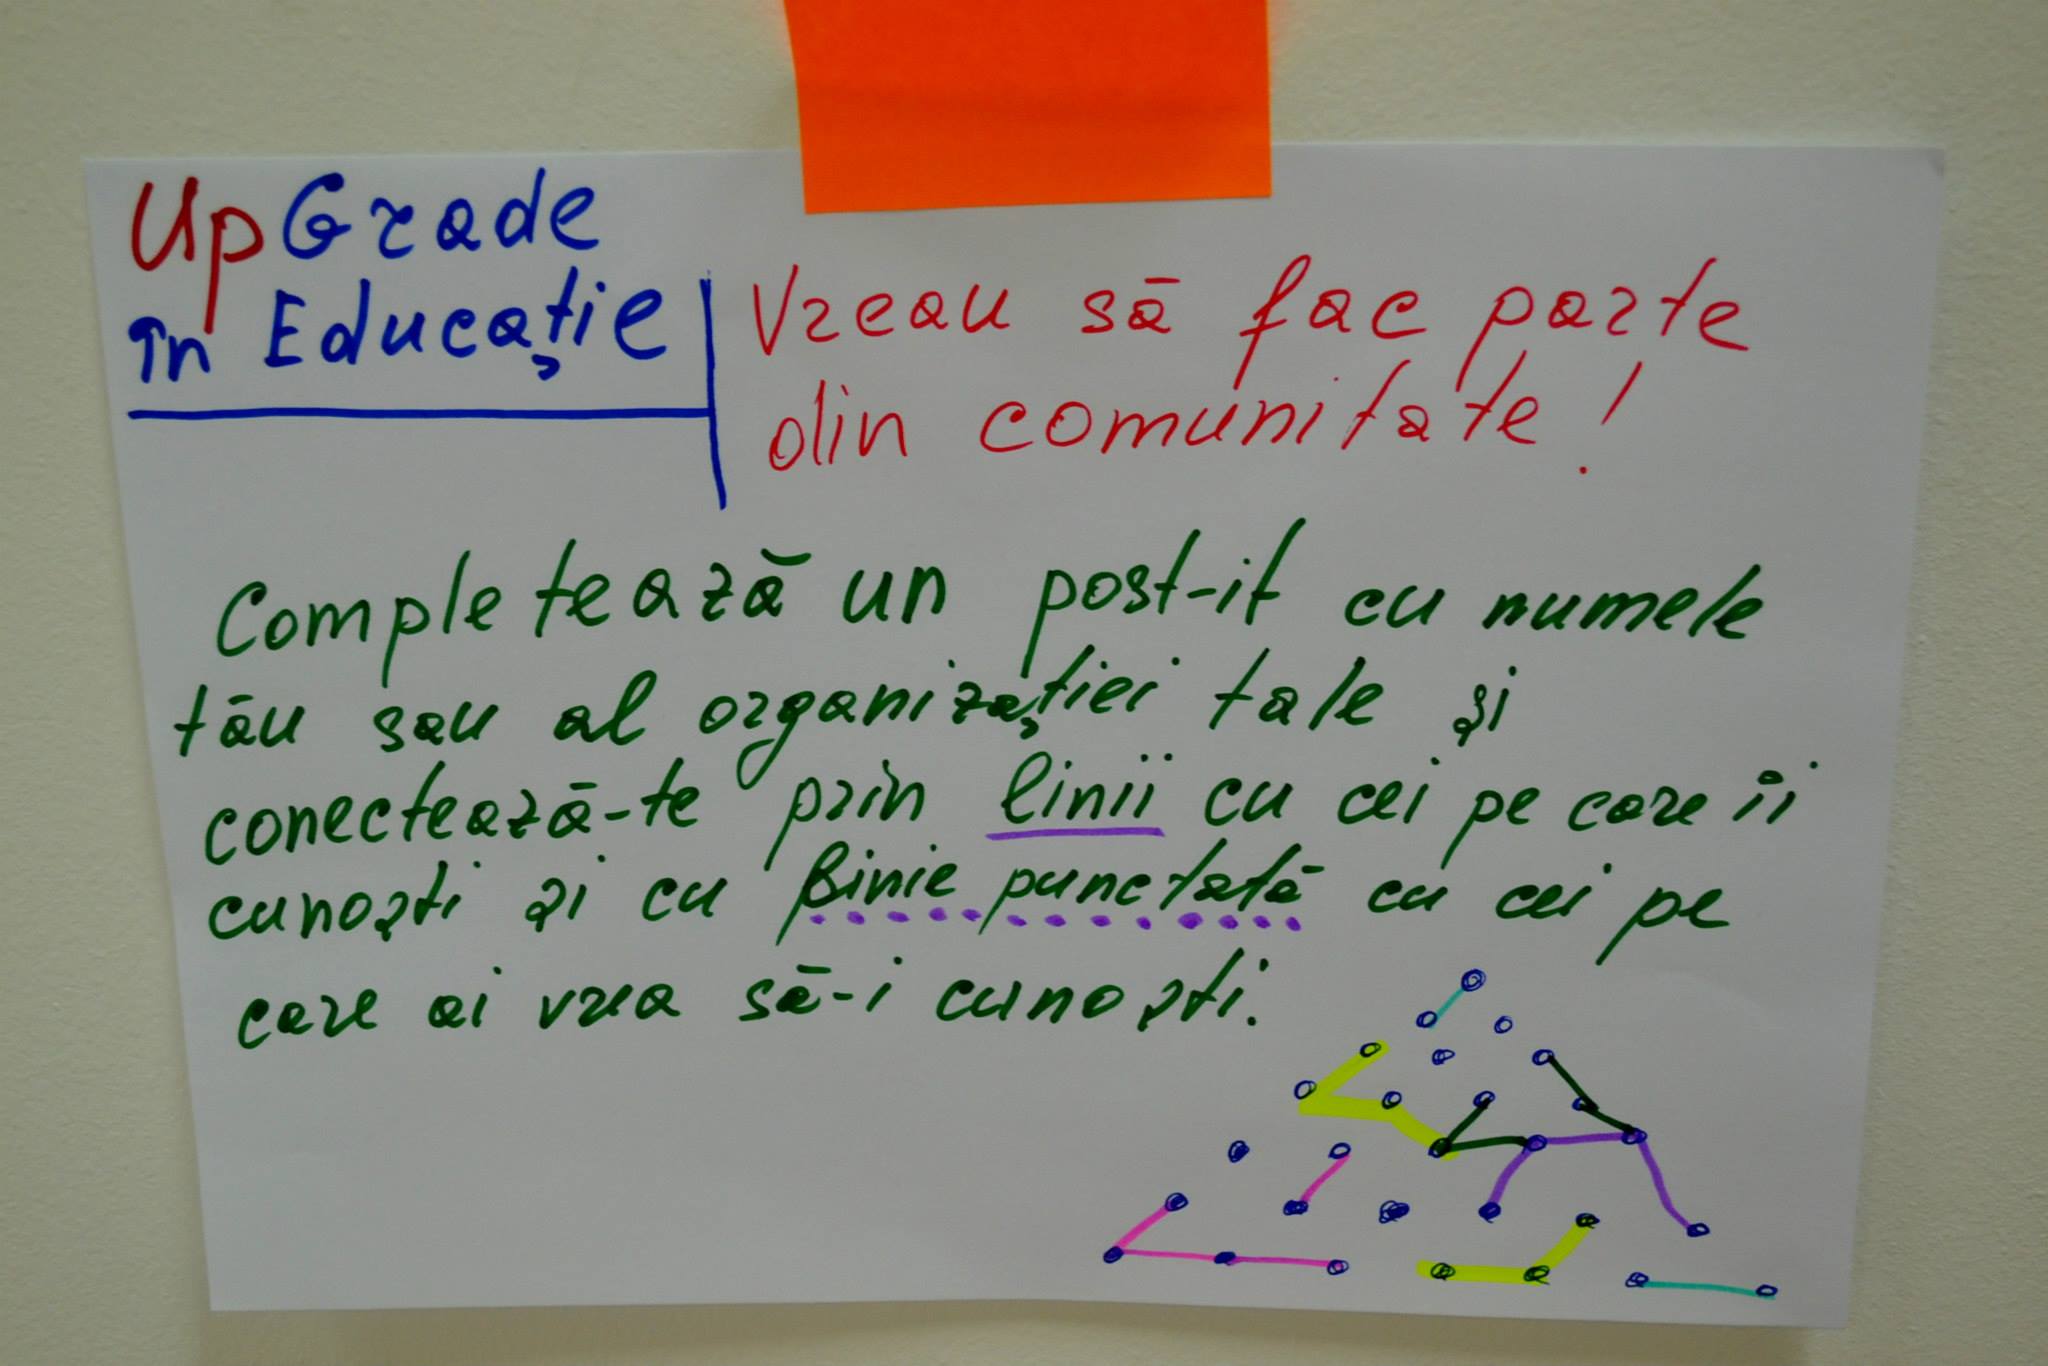 UpGrade
în Educație
Vreau să fac parte
din comunitate!
Completează un post-it cu numele
tău sau al organizației tale și
conectează-te prin linii cu cei pe care îi
cunoști și cu linie punctată cu cei pe
care ai vrea să-i cunoști.